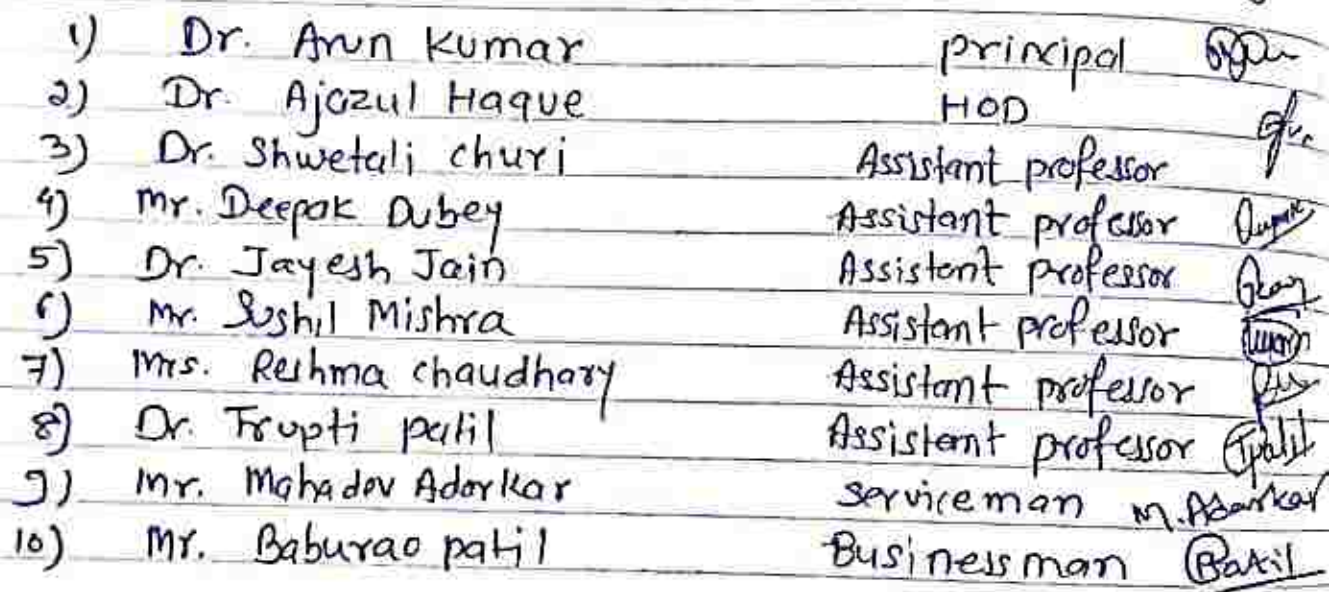 1) Dr. Arun Kumar principal
2) Dr. Ajazul Haque HOD
3) Dr. Shwetali churi Assistant professor
4) Mr. Deepak Dubey Assistant professor
5) Dr. Jayesh Jain Assistant professor
6) Mr. Sushil Mishra Assistant professor
7) Mrs. Reshma chaudhary Assistant professor
8) Dr. Trupti patil Assistant professor Tpatil
9) Mr. Mahadev Adarkar serviceman M.Adarkar
10) Mr. Baburao patil Businessman BPatil